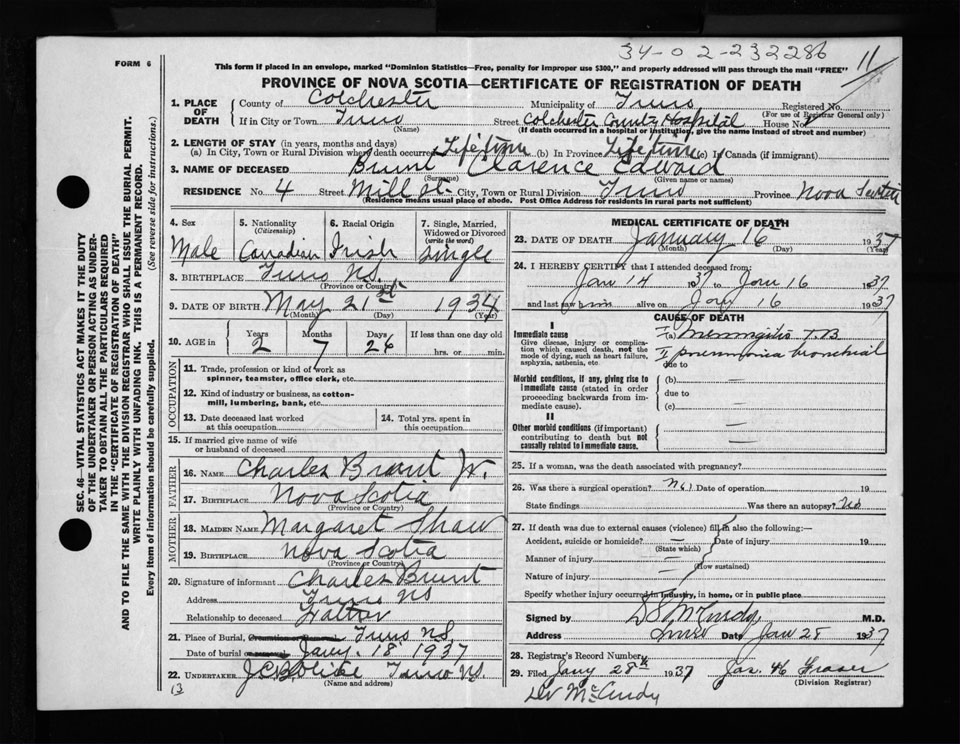 34-02-232286
11
13
FORM 6
This form if placed in an envelope, marked "Dominion Statistics—Free, penalty for improper use $300," and properly addressed will pass through the mail "FREE"
PROVINCE OF NOVA SCOTIA—CERTIFICATE OF REGISTRATION OF DEATH
SEC. 46—VITAL STATISTICS ACT MAKES IT THE DUTY
OF THE UNDERTAKER OR PERSON ACTING AS UNDER-
TAKER TO OBTAIN ALL THE PARTICULARS REQUIRED
IN THE "CERTIFICATE OF REGISTRATION OF DEATH"
AND TO FILE THE SAME WITH THE DIVISION REGISTRAR WHO SHALL ISSUE THE BURIAL PERMIT.
WRITE PLAINLY WITH UNFADING INK. THIS IS A PERMANENT RECORD.
Every item of information should be carefully supplied. (See reverse side for instructions.)
1. PLACE OF DEATH County of Colchester Municipality of Truro Registered No.
(For use of Registrar General only)
If in City or Town Truro Street Colchester County Hospital House No.
(Name) (If death occurred in a hospital or institution, give the name instead of street and number)
2. LENGTH OF STAY (in years, months and days)
(a) In City, Town or Rural Division where death occurred Lifetime (b) In Province Lifetime (c) In Canada (if immigrant)
3. NAME OF DECEASED Brunt Clarence Edward
(Surname) (Given name or names)
RESIDENCE No. 4 Street Mill St. City, Town or Rural Division Truro Province Nova Scotia
(Residence means usual place of abode. Post Office Address for residents in rural parts not sufficient)
4. Sex Male
5. Nationality (Citizenship) Canadian
6. Racial Origin Irish
7. Single, Married, Widowed or Divorced (write the word) Single
8. BIRTHPLACE Truro N.S.
(Province or Country)
9. DATE OF BIRTH May 21st 1934
(Month) (Day) (Year)
10. AGE in Years 2 Months 7 Days 26 If less than one day old
hrs. or min.
OCCUPATION
11. Trade, profession or kind of work as
spinner, teamster, office clerk, etc.
12. Kind of industry or business, as cotton-
mill, lumbering, bank, etc.
13. Date deceased last worked
at this occupation
14. Total yrs. spent in
this occupation
15. If married give name of wife
or husband of deceased
FATHER
16. NAME Charles Brunt Jr.
17. BIRTHPLACE Nova Scotia
(Province or Country)
MOTHER
18. MAIDEN NAME Margaret Shaw
19. BIRTHPLACE Nova Scotia
(Province or Country)
20. Signature of informant Charles Brunt
Address Truro NS
Relationship to deceased Father
21. Place of Burial, Cremation or removal Truro N.S.
Date of burial or removal Jany. 18 1937
22. UNDERTAKER Truro N.S.
(Name and address)
13
MEDICAL CERTIFICATE OF DEATH
23. DATE OF DEATH January 16 1937
(Month) (Day) (Year)
24. I HEREBY CERTIFY that I attended deceased from:
Jan 14 1937 to Jan 16 1937
and last saw him alive on Jany 16 1937
CAUSE OF DEATH
I
Immediate cause
Give disease, injury or complica-
tion which caused death, not the
mode of dying, such as heart failure,
asphyxia, asthenia, etc.
I (a) Meningitis T.B
II pneumonia bronchial
due to
Morbid conditions, if any, giving rise to
immediate cause (stated in order
proceeding backwards from im-
mediate cause).
(b) —
due to
(c) —
II
Other morbid conditions (if important)
contributing to death but not
causally related to immediate cause.
—
—
25. If a woman, was the death associated with pregnancy?
26. Was there a surgical operation? No Date of operation 19
State findings Was there an autopsy? No
27. If death was due to external causes (violence) fill in also the following:—
Accident, suicide or homicide? — Date of injury 19
(State which)
Manner of injury —
(How sustained)
Nature of injury —
Specify whether injury occurred in industry, in home, or in public place
Signed by D S McCurdy M.D.
Address Truro Date Jan 28 1937
28. Registrar's Record Number
29. Filed Jany 28th 1937 Jas. H Fraser
(Division Registrar)
Dr McCurdy